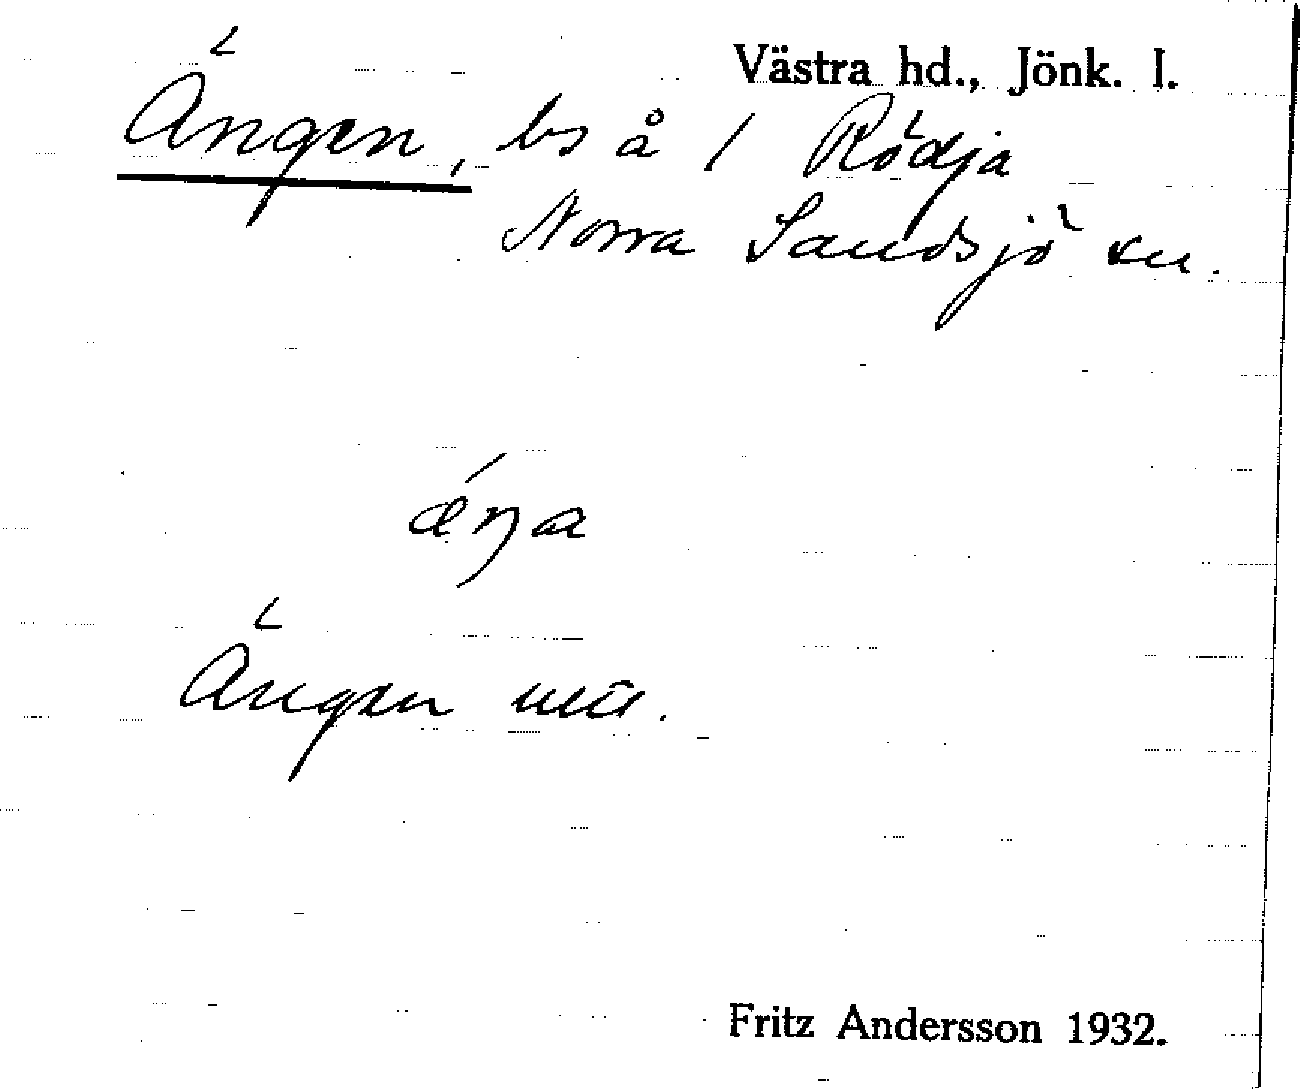 Västra hd., Jönk. l.
Ängen, bs å 1 Rödja
Norra Sandsjö sn.
ǽŋa
Ängen
Fritz Andersson 1932.